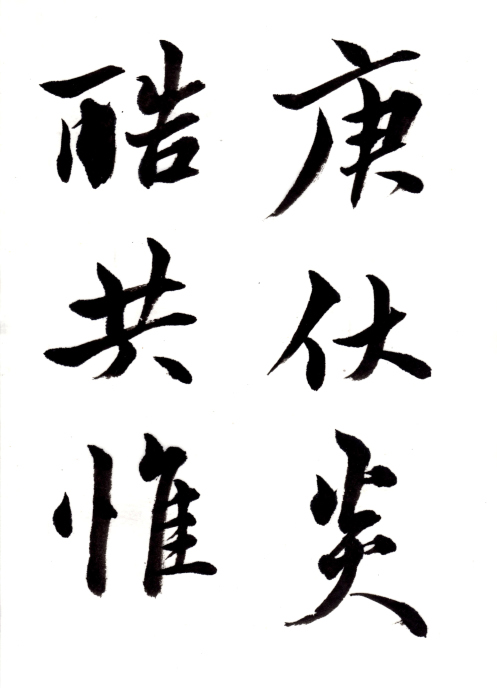 庚伏炎
酷共惟